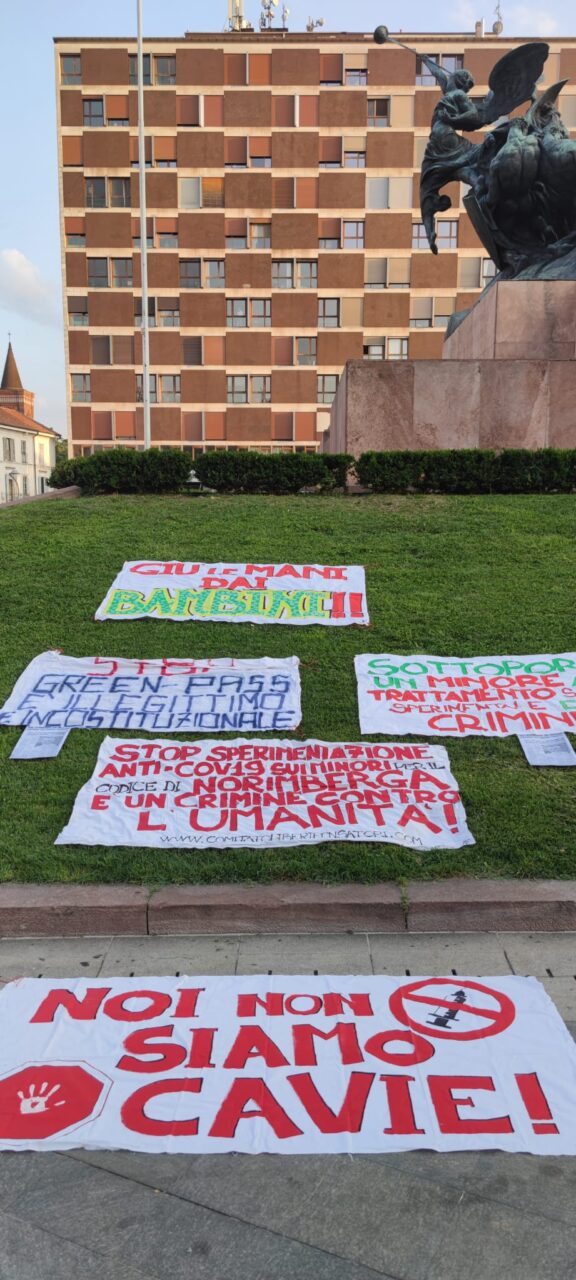 GIU LE MANI
DAI
BAMBINI!!
STOP
GREEN-PASS
E' ILLEGITTIMO
E INCOSTITUZIONALE
SOTTOPOR
UN MINORE A
TRATTAMENTO
SPERIMENTALE E
CRIMIN
STOP SPERIMENTAZIONE
ANTI-COV19 SUI MINORI PER IL
CODICE DI NORIMBERGA
E UN CRIMINE CONTRO
L'UMANITA'!
WWW.COMITATOLIBERIPENSATORI.COM
NOI NON
SIAMO
CAVIE!